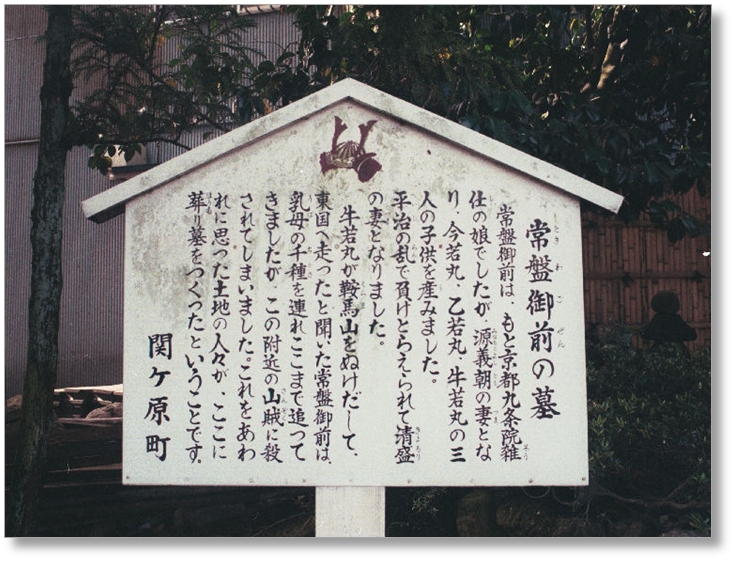 常盤御前の墓
常盤御前は、もと京都九条院雑
仕の娘でしたが、源義朝の妻とな
り、今若丸、乙若丸、牛若丸の三
人の子供を産みました。
平治の乱で負けとらえられて清盛
の妻となりました。
牛若丸が鞍馬山をぬけだして、
東国へ走ったと聞いた常盤御前は、
乳母の千種を連れここまで追って
きましたが、この附近の山賊に殺
されてしまいました。これをあわ
れに思った土地の人々が、ここに
葬り墓をつくったということです。
関ヶ原町